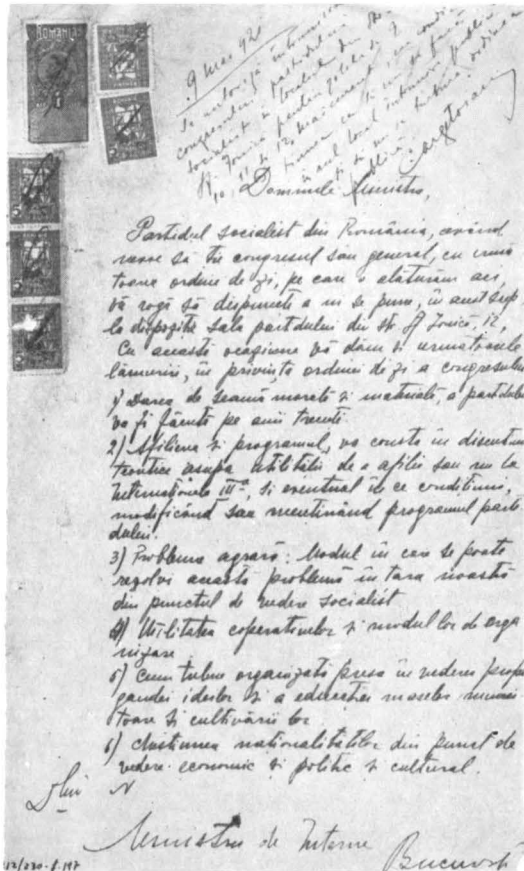 ROMANIA
9 Mai 921
Se autoriză întrunirea
congresului partidului
socialist în localul din str.
Sf. Ionică pentru zilele de 8,
10, 11 și 12 Mai curent, cu condi-
Domnule Ministru,
Partidul socialist din România, având
nevoe să 'și ție congresul său general, cu urmă
toarea ordine de zi, pe care o alăturăm aci,
vă rogă să dispuneți a ni se pune, în acest scop
la dispoziție sala partidului din str. Sf Ionică, 12,
Cu această ocaziune vă dăm și urmatoarele
lămuriri, în privința ordinei de zi a congresului
1) Darea de seamă, morală și materială, a partidului
va fi făcută pe anii trecuți
2) Afilierea și programul, va consta în discuțiuni
teoretice asupra utilităței de a afilia sau nu la
Internaționala III-a, și eventual în ce condițiuni,
modificând sau menținând programul parti
dului.
3) Problema agrară: Modul în care se poate
rezolvi această problemă în țara noastră
din punctul de vedere socialist
4) Utilitatea coperativelor și modul lor de orga
nizare
5) Cum trebue organizată presa în vederea propa
gandei ideilor și a educației maselor munci
toare și cultivării lor
6) Chestiunea naționalităților din punct de
vedere economic și politic și cultural.
Dlui
Ministru de Interne
București